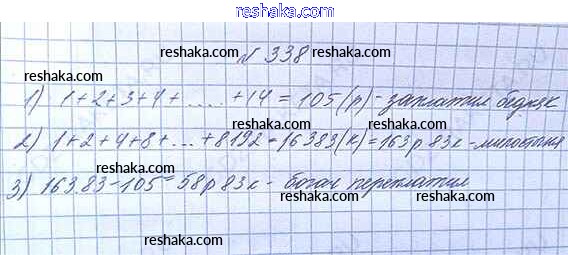 reshaka.com
№ 338
reshaka.com
reshaka.com
reshaka.com
1) 1+2+3+4+ .... +14 = 105 (р) - заплатил бедняк
reshaka.com
2) 1+2+4+8+...+8192=16383(к)=163р 83к - милостыня
reshaka.com
reshaka.com
3) 163.83-105=58р 83к - богач переплатил
reshaka.com
reshaka.com
reshaka.com